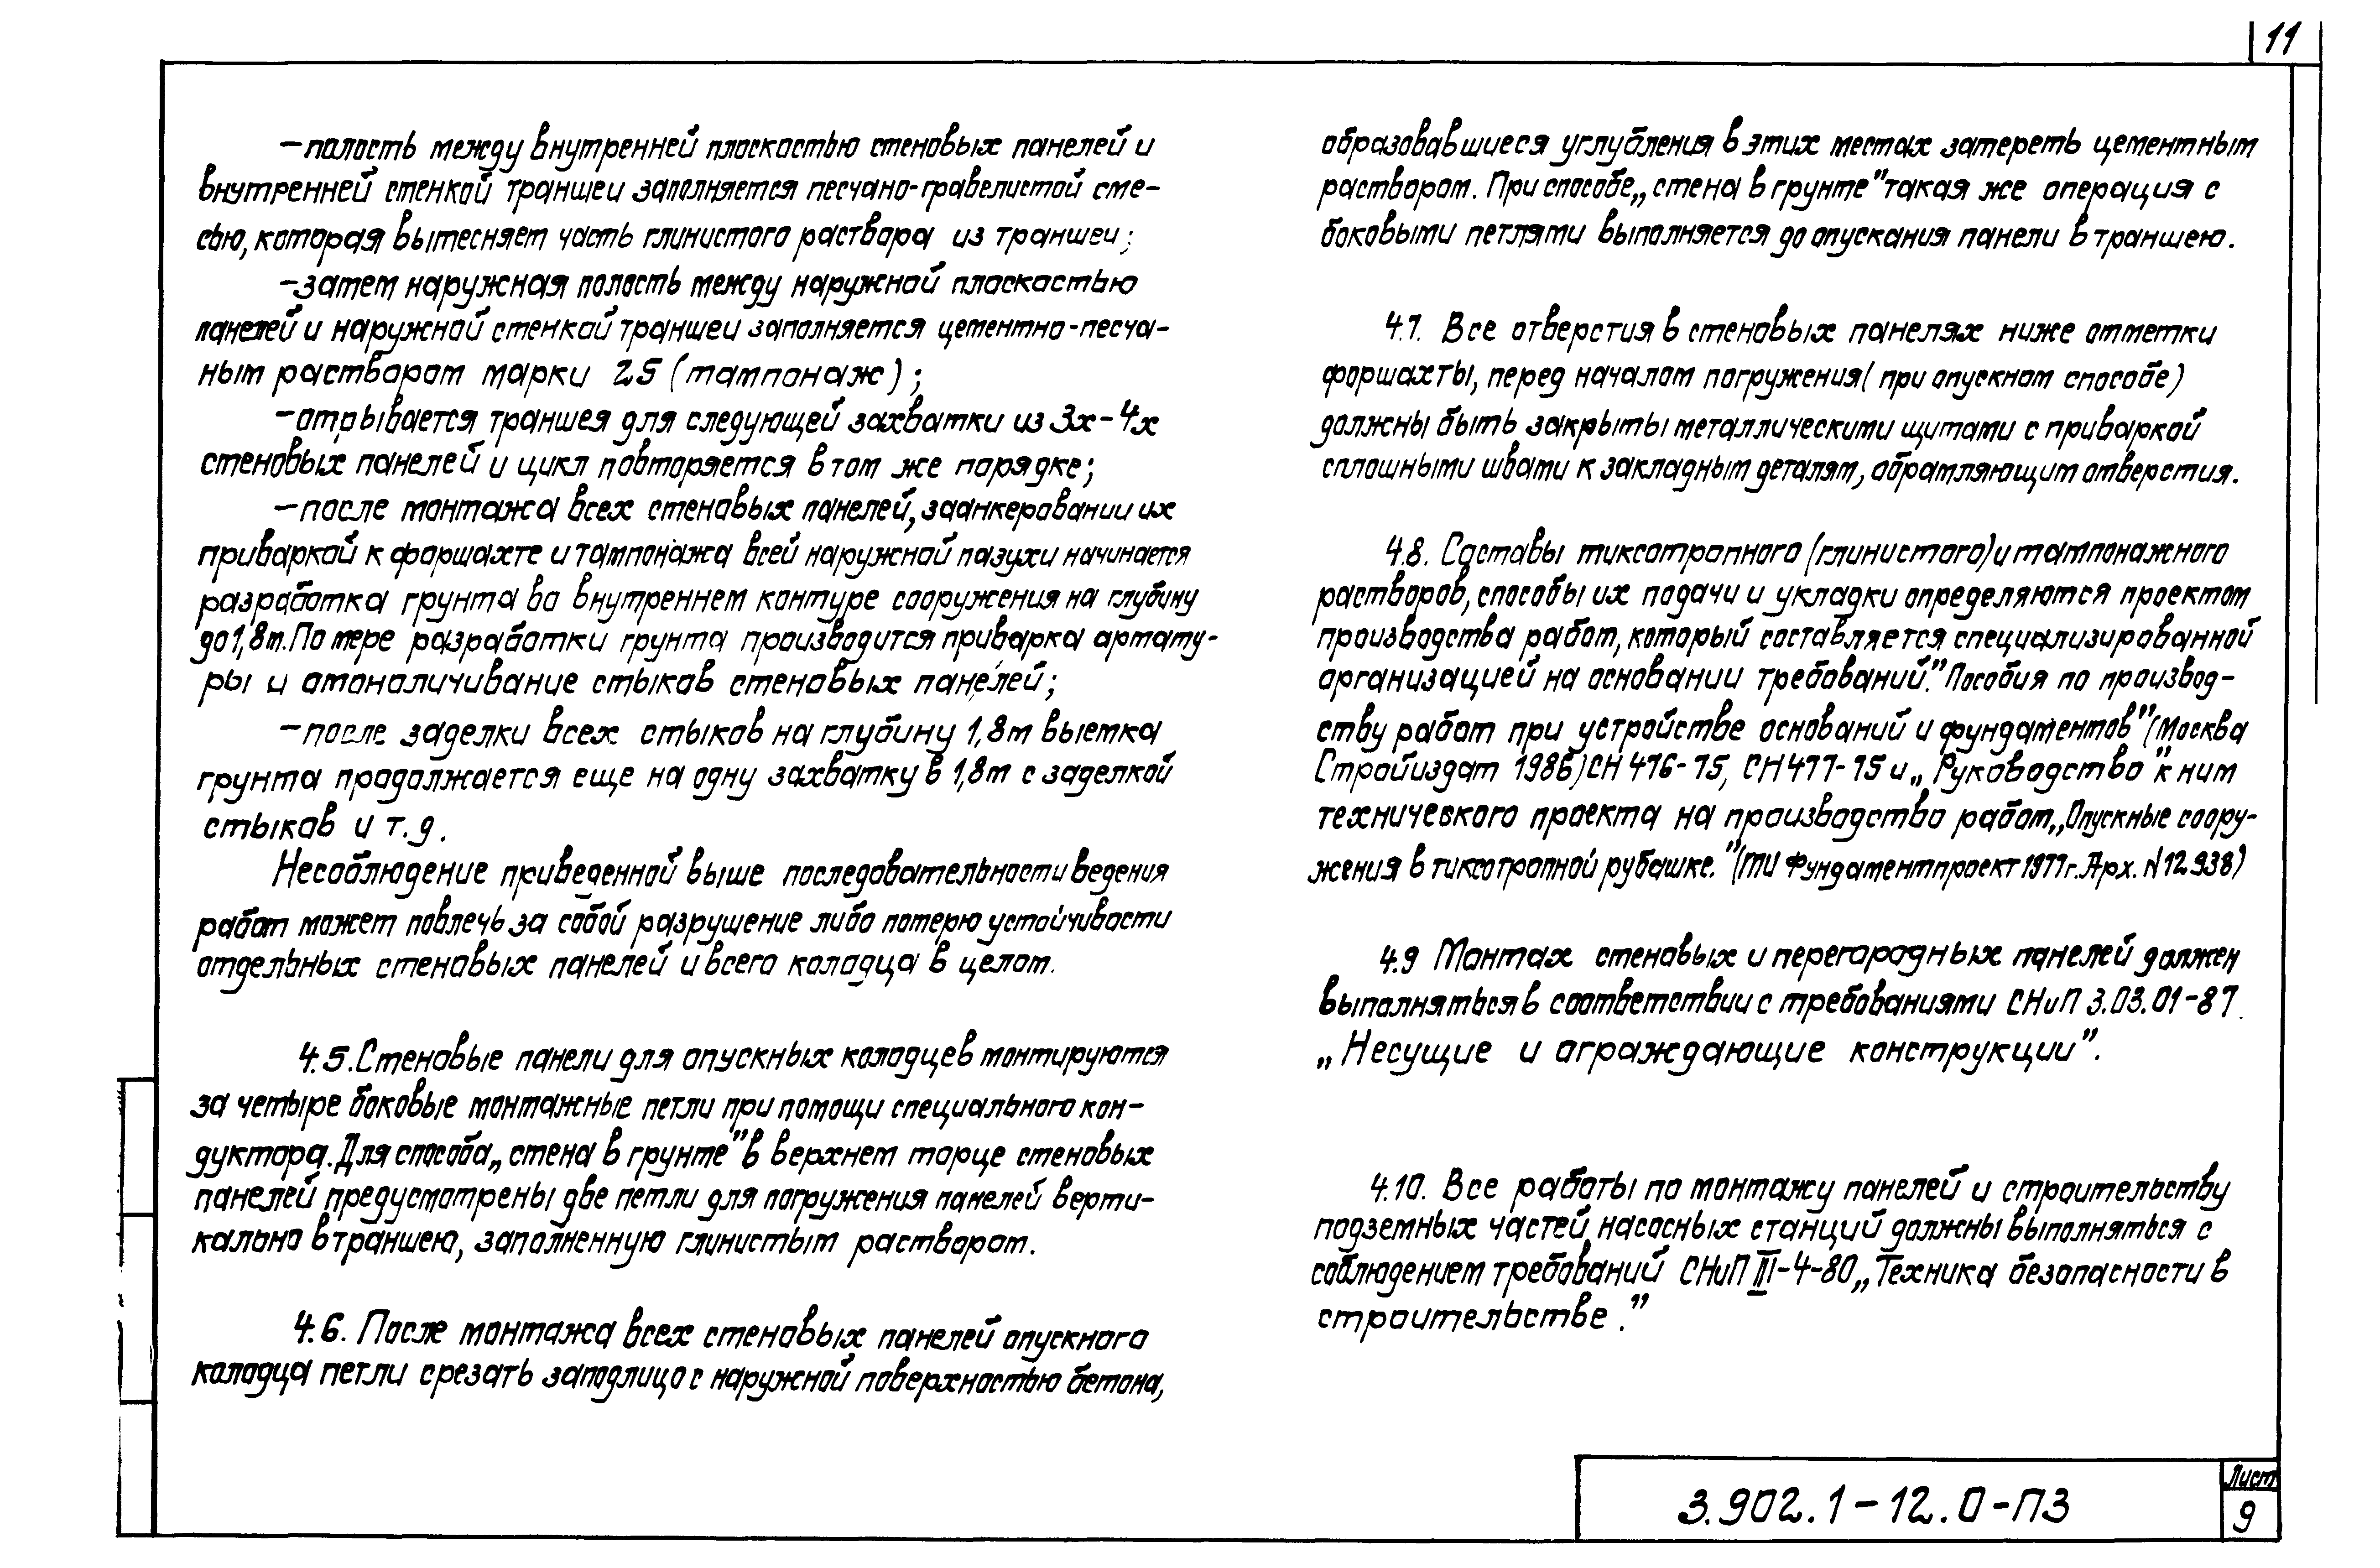 11
– полость между внутренней плоскостью стеновых панелей и
внутренней стенкой траншеи заполняется песчано-гравелистой сме-
сью, которая вытесняет часть глинистого раствора из траншеи;
– затем наружная полость между наружной плоскостью
панелей и наружной стенкой траншеи заполняется цементно-песча-
ным раствором марки 25 (тампонаж);
– отрывается траншея для следующей захватки из 3х-4х
стеновых панелей и цикл повторяется в том же порядке;
– после монтажа всех стеновых панелей, заанкеровании их
приваркой к форшахте и тампонажа всей наружной пазухи начинается
разработка грунта во внутреннем контуре сооружения на глубину
до 1,8м. По мере разработки грунта производится приварка армату-
ры и омоноличивание стыков стеновых панелей;
– после заделки всех стыков на глубину 1,8м выемка
грунта продолжается еще на одну захватку в 1,8м с заделкой
стыков и т.д.
Несоблюдение приведенной выше последовательности ведения
работ может повлечь за собой разрушение либо потерю устойчивости
отдельных стеновых панелей и всего колодца в целом.
4.5. Стеновые панели для опускных колодцев монтируются
за четыре боковые монтажные петли при помощи специального кон-
дуктора. Для способа „стена в грунте" в верхнем торце стеновых
панелей предусмотрены две петли для погружения панелей верти-
кально в траншею, заполненную глинистым раствором.
4.6. После монтажа всех стеновых панелей опускного
колодца петли срезать заподлицо с наружной поверхностью бетона,
образовавшиеся углубления в этих местах затереть цементным
раствором. При способе „стена в грунте" такая же операция с
боковыми петлями выполняется до опускания панели в траншею.
4.7. Все отверстия в стеновых панелях ниже отметки
форшахты, перед началом погружения (при опускном способе)
должны быть закрыты металлическими щитами с приваркой
сплошными швами к закладным деталям, обрамляющим отверстия.
4.8. Составы тиксотропного (глинистого) и тампонажного
растворов, способы их подачи и укладки определяются проектом
производства работ, который составляется специализированной
организацией на основании требований." Пособия по производ-
ству работ при устройстве оснований и фундаментов" (Москва
Стройиздат 1986) СН 476-75, СН 477-75 и „Руководство" к ним
технического проекта на производство работ „Опускные соору-
жения в тиксотропной рубашке." (ТМ Фундаментпроект 1977г. Арх. N 12938)
4.9 Монтах стеновых и перегородных панелей должен
выполняться в соответствии с требованиями СНиП 3.03.01-87
„Несущие и ограждающие конструкции".
4.10. Все работы по монтажу панелей и строительству
подземных частей насосных станций должны выполняться с
соблюдением требований СНиП III-4-80 „Техника безопасности в
строительстве."
3.902.1-12.0-ПЗ
Лист
9